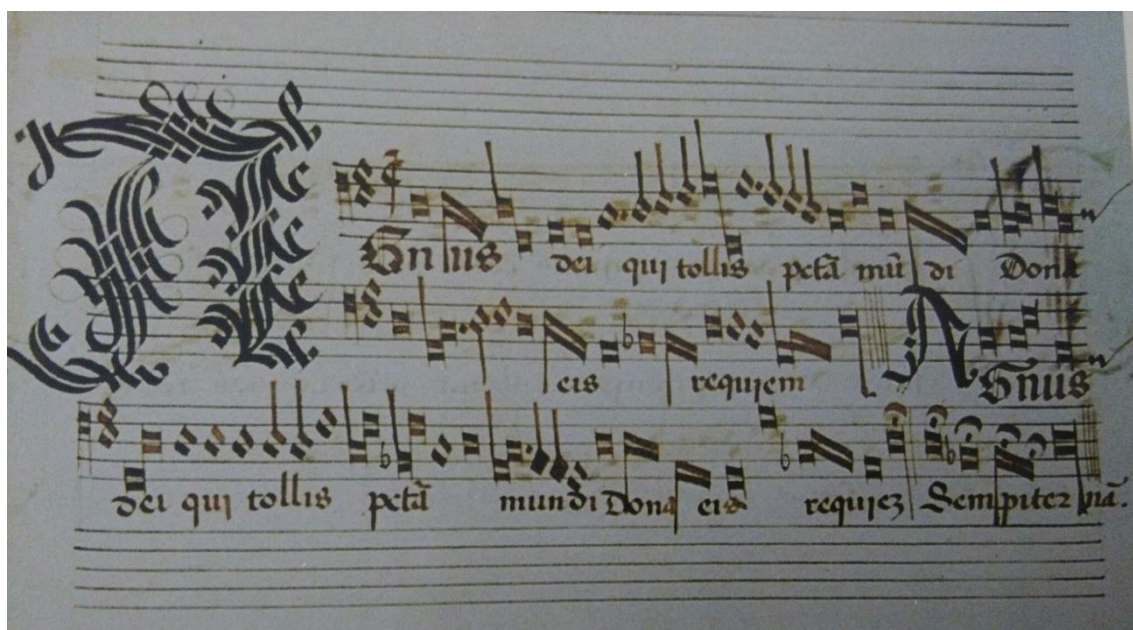 Agnus dei qui tollis pctā mū di Dona
eis requiem Agnus
dei qui tollis pctā mundi Dona eis requiez Sempiternā.